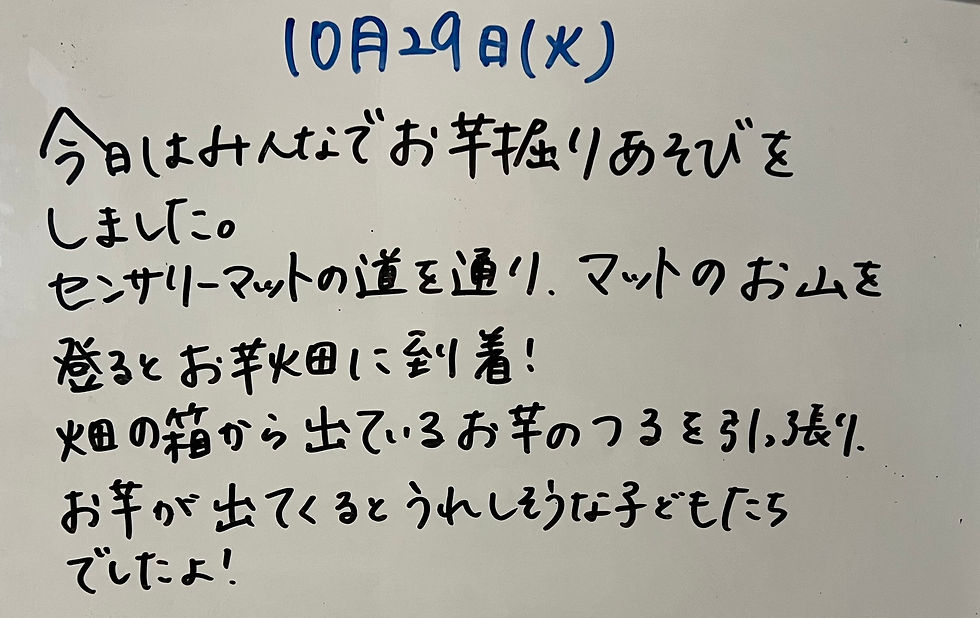 10月29日(火)
今日はみんなでお芋掘りあそびを
しました。
センサリーマットの道を通り、マットのお山を
登るとお芋畑に到着!
畑の箱から出ているお芋のつるを引っ張り、
お芋が出てくるとうれしそうな子どもたち
でしたよ!